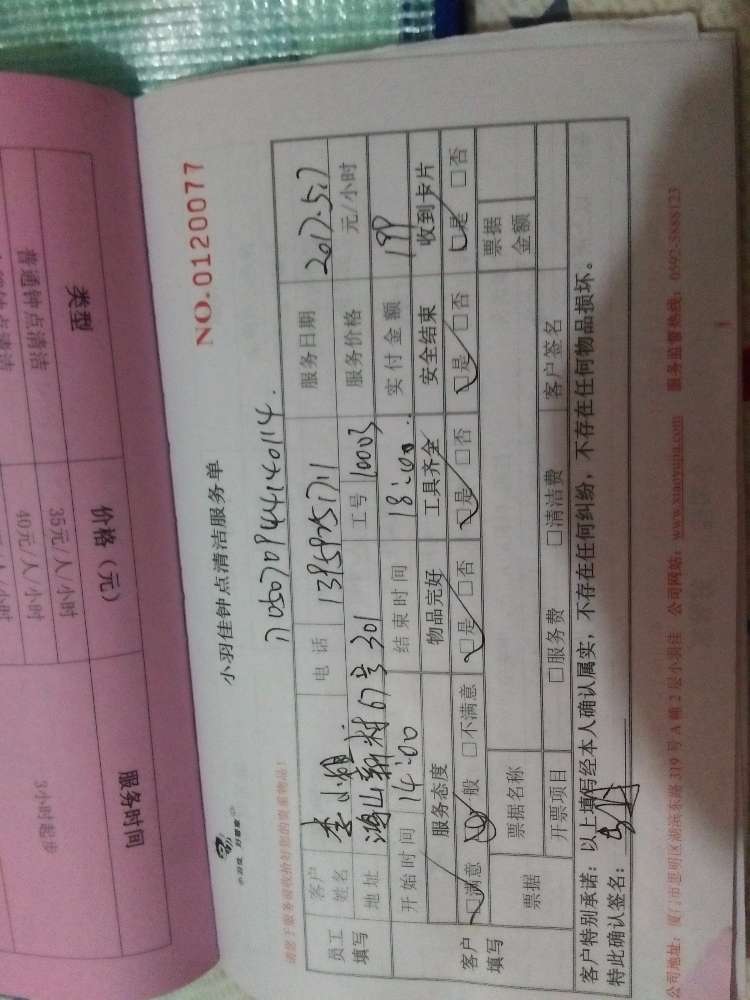 类型
价格（元）
服务时间
普通钟点清洁
35元/人/小时
40元/人/小时
3小时起步
小羽佳
NO.0120077
小羽佳钟点清洁服务单
请您于服务前收拾好您的贵重物品！
170507094414140114.
员工填写
客户姓名
李小姐
电话
13959251711
服务日期
2017.5.7
地址
鸿山新村67号301
工号
10003
服务价格
元/小时
开始时间
14:00
结束时间
18:00
实付金额
199
客户填写
服务态度
物品完好
工具齐全
安全结束
收到卡片
□满意 □一般 □不满意
□是 □否
□是 □否
□是 □否
□是 □否
票据
票据名称
票据金额
开票项目
□服务费
□清洁费
客户签名
客户特别承诺：以上填写经本人确认属实，不存在任何纠纷，不存在任何物品损坏。
特此确认签名：
公司地址：厦门市思明区湖滨东路319号A幢2层小羽佳 公司网站：www.xiaoyujia.com 服务监督热线：0592-5888123